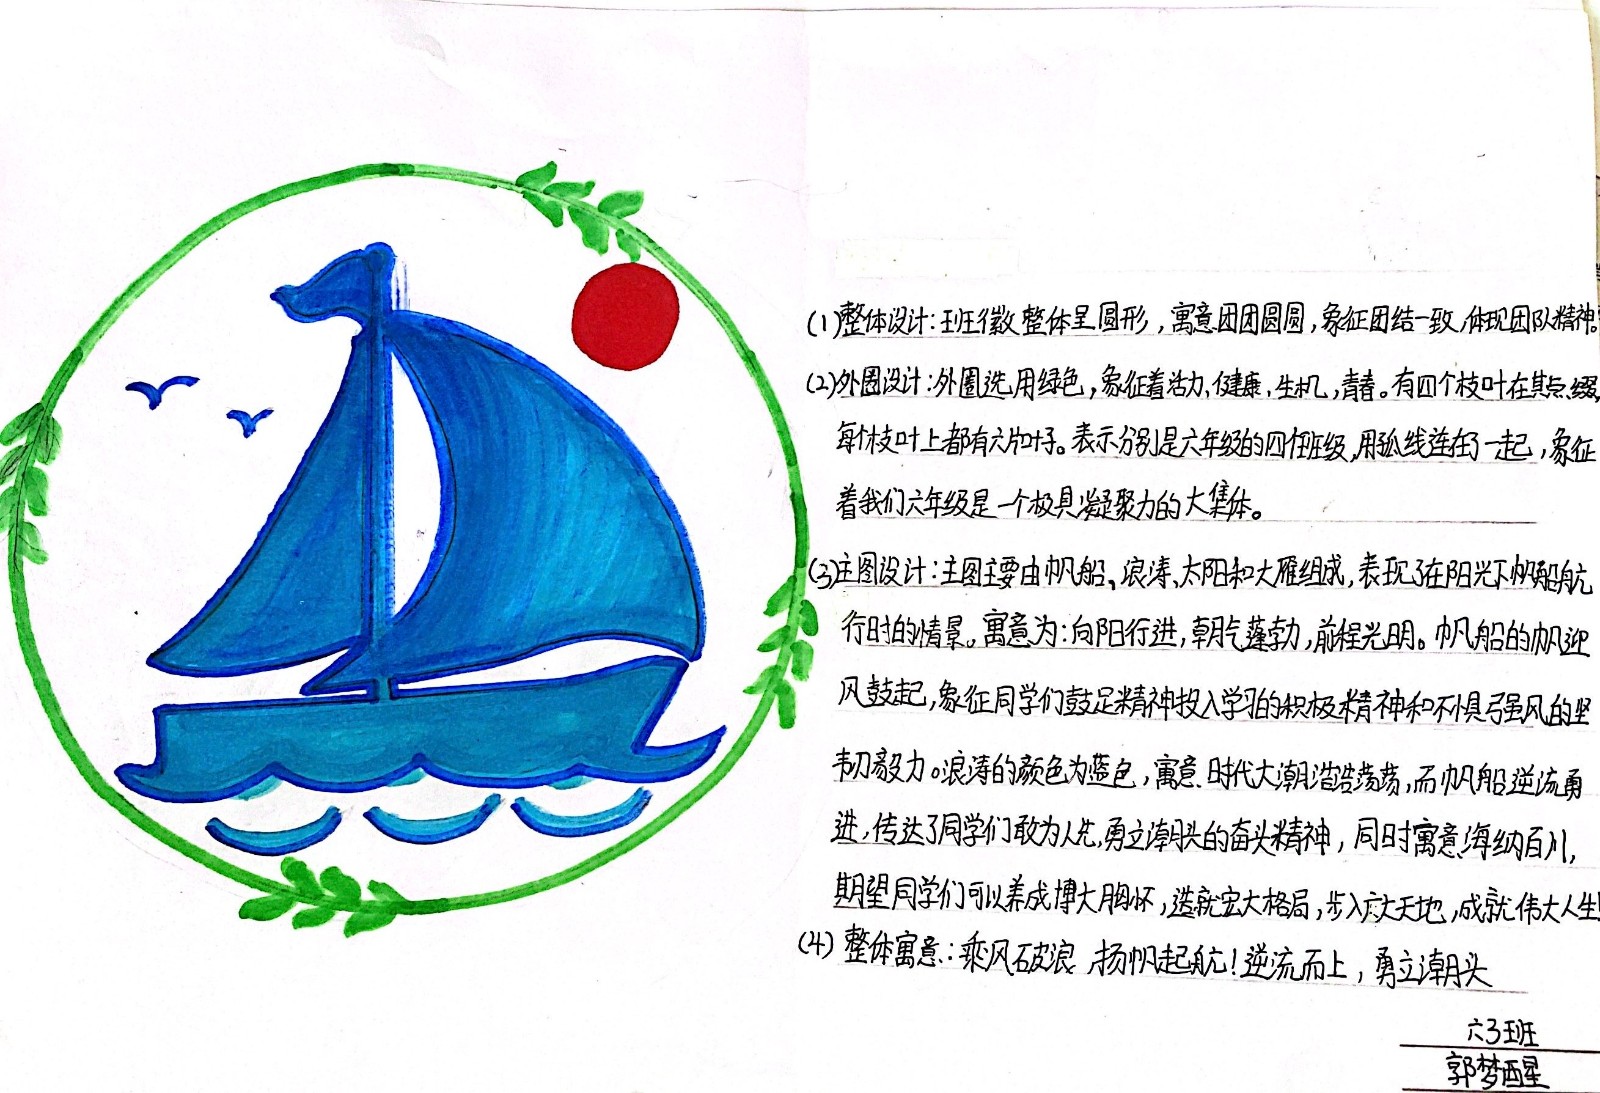 (1)整体设计:班徽整体呈圆形,寓意团团圆圆,象征团结一致,体现团队精神。
(2)外圈设计:外圈选用绿色,象征着活力、健康、生机,青春。有四个枝叶在其点缀,
每个枝叶上都有六片叶子。表示分别是六年级的四个班级,用弧线连在了一起,象征
着我们六年级是一个极具凝聚力的大集体。
(3)主图设计:主图主要由帆船、浪涛、太阳和大雁组成,表现了在阳光下帆船航
行时的情景。寓意为:向阳行进,朝气蓬勃,前程光明。帆船的帆迎
风鼓起,象征同学们鼓足精神投入学习的积极精神和不惧强风的坚
韧毅力。浪涛的颜色为蓝色,寓意时代大潮浩浩荡荡,而帆船逆流勇
进,传达了同学们敢为人先,勇立潮头的奋头精神,同时寓意海纳百川,
期望同学们可以养成博大胸怀,造就宏大格局,步入广大天地,成就伟大人生!
(4)整体寓意:乘风破浪,扬帆起航!逆流而上,勇立潮头
六3班
郭梦西星